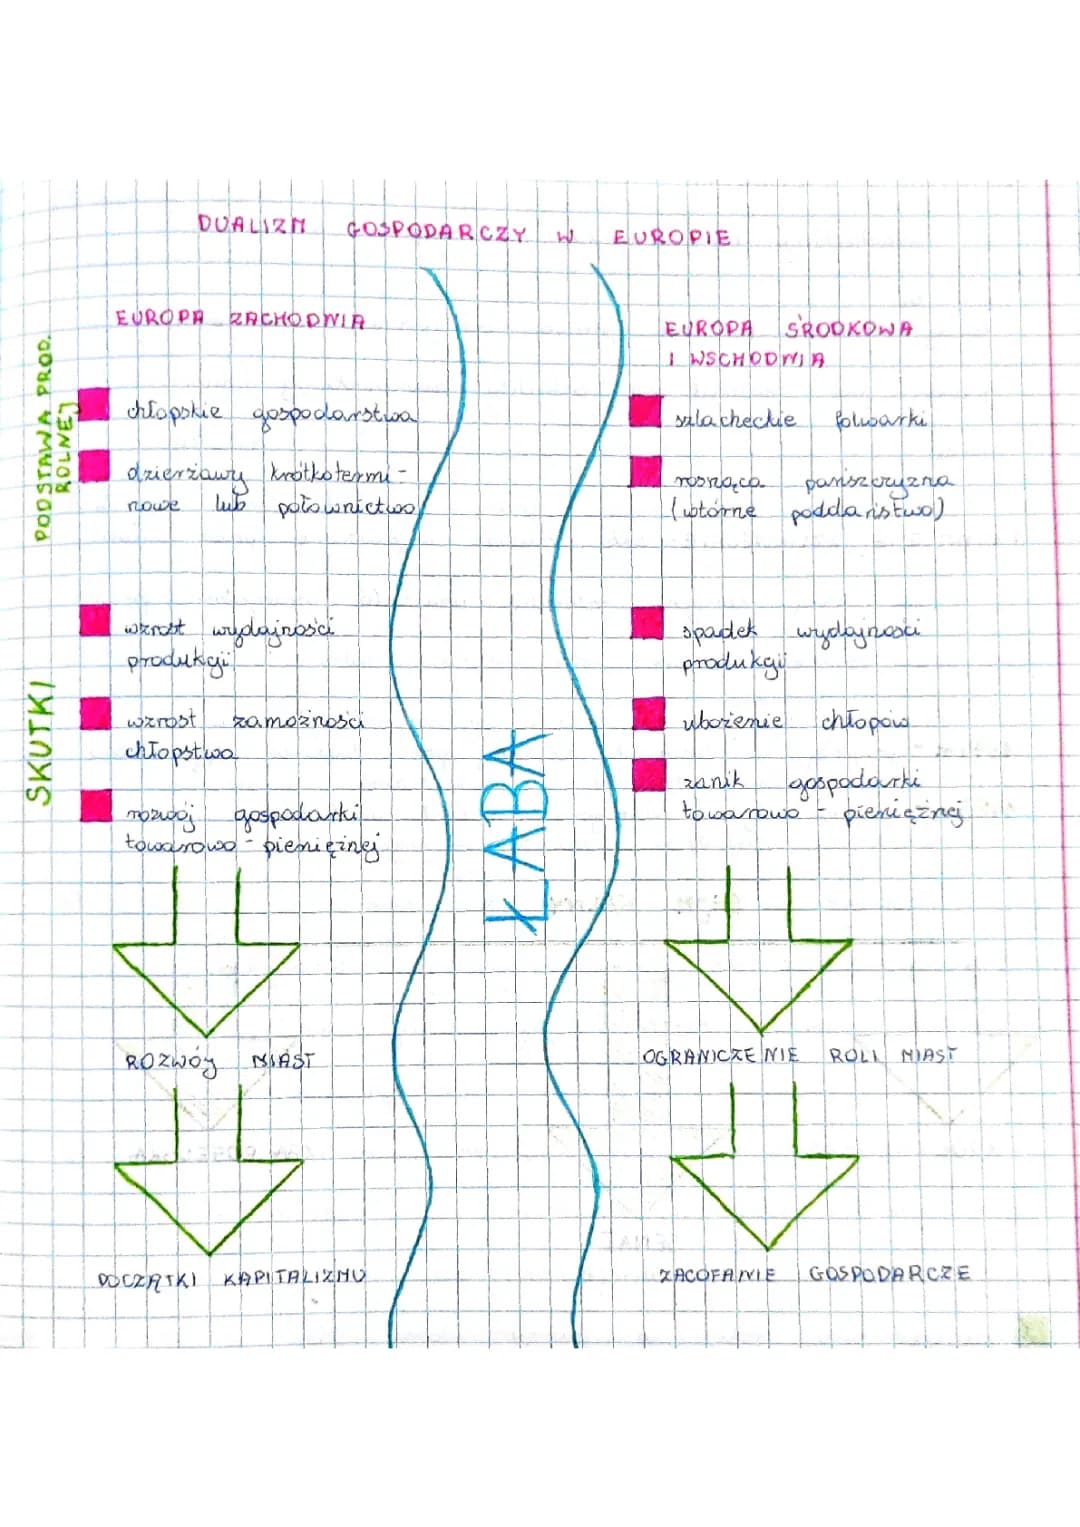 DUALIZM GOSPODARCZY W EUROPIE
EUROPA ZACHODNIA
PODSTAWA PROD.
ROLNEJ
chłopskie gospodarstwa
dzierżawy krótkotermi-
nowe lub połownictwo
SKUTKI
wzrost wydajności
produkcji
wzrost zamożności
chłopstwa
rozwój gospodarki
towarowo - pieniężnej
ROZWÓJ MIAST
POCZĄTKI KAPITALIZMU
ŁABA
EUROPA ŚRODKOWA
I WSCHODNIA
szlacheckie folwarki
rosnąca pańszczyzna
(wtórne poddaństwo)
spadek wydajności
produkcji
ubożenie chłopów
zanik gospodarki
towarowo - pieniężnej
OGRANICZENIE ROLI MIAST
ZACOFANIE GOSPODARCZE